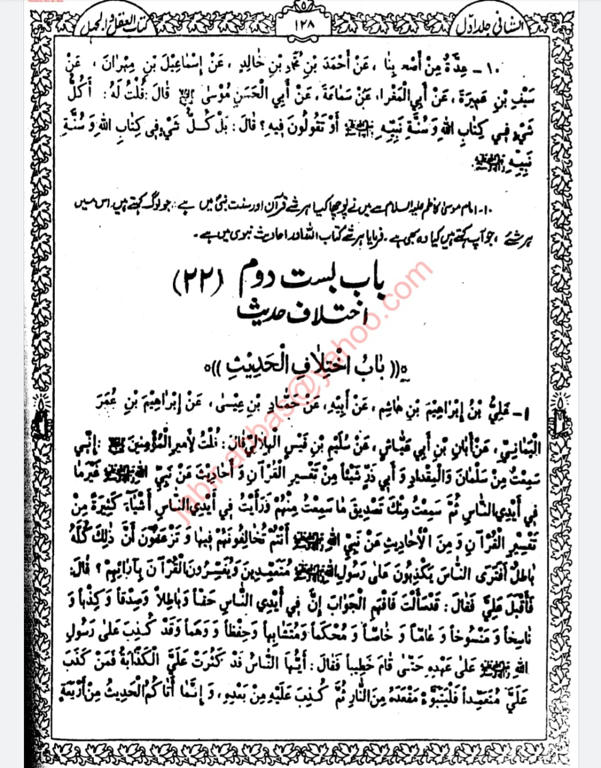 الشافی جلد اوّل ۱۲۸ کتاب العقل والجہل
۱۰ - عِدَّةٌ مِنْ أَصْحَابِنَا، عَنْ أَحْمَدَ بْنِ مُحَمَّدِ بْنِ خَالِدٍ، عَنْ إِسْمَاعِيلَ بْنِ مِهْرَانَ، عَنْ
سَيْفِ بْنِ عَمِيرَةَ، عَنْ أَبِي الْمَغْرَا، عَنْ سَمَاعَةَ، عَنْ أَبِي الْحَسَنِ مُوسَىٰ قَالَ: قُلْتُ لَهُ: أَكُلُّ
شَيْءٍ فِي كِتَابِ اللهِ وَسُنَّةِ نَبِيِّهِ أَوْ تَقُولُونَ فِيهِ؟ قَالَ: بَلْ كُلُّ شَيْءٍ فِي كِتَابِ اللهِ وَسُنَّةِ
نَبِيِّهِ
۱۰۔ امام موسیٰ کاظم علیہ السلام سے میں نے پوچھا کیا ہر شے قرآن اور سنت نبیؐ میں ہے، جو لوگ کہتے ہیں اس میں
ہر شئے، جو آپ کہتے ہیں کیا وہ بھی ہے۔ فرمایا ہر شے کتاب اللہ اور احادیث نبوی میں ہے۔
باب بست دوم (۲۲)
اختلاف حدیث
((بَابُ اخْتِلَافِ الْحَدِيثِ))
۱- عَلِيُّ بْنُ إِبْرَاهِيمَ بْنِ هَاشِمٍ، عَنْ أَبِيهِ، عَنْ حَمَّادِ بْنِ عِيسَىٰ، عَنْ إِبْرَاهِيمَ بْنِ عُمَرَ
الْيَمَانِيِّ، عَنْ أَبَانِ بْنِ أَبِي عَيَّاشٍ، عَنْ سُلَيْمِ بْنِ قَيْسٍ الْهِلَالِيِّ قَالَ: قُلْتُ لِأَمِيرِ الْمُؤْمِنِينَ: إِنِّي
سَمِعْتُ مِنْ سَلْمَانَ وَالْمِقْدَادِ وَأَبِي ذَرٍّ شَيْئاً مِنْ تَفْسِيرِ الْقُرْآنِ وَأَحَادِيثَ عَنْ نَبِيِّ اللهِ غَيْرَ مَا
فِي أَيْدِي النَّاسِ ثُمَّ سَمِعْتُ مِنْكَ تَصْدِيقَ مَا سَمِعْتُ مِنْهُمْ وَرَأَيْتُ فِي أَيْدِي النَّاسِ أَشْيَاءَ كَثِيرَةً مِنْ
تَفْسِيرِ الْقُرْآنِ وَمِنَ الْأَحَادِيثِ عَنْ نَبِيِّ اللهِ أَنْتُمْ تُخَالِفُونَهُمْ فِيهَا وَتَزْعَمُونَ أَنَّ ذَٰلِكَ كُلَّهُ
بَاطِلٌ أَفَتَرَى النَّاسَ يَكْذِبُونَ عَلَىٰ رَسُولِ اللهِ مُتَعَمِّدِينَ وَيُفَسِّرُونَ الْقُرْآنَ بِآرَائِهِمْ؟ قَالَ:
فَأَقْبَلَ عَلَيَّ فَقَالَ: قَدْ سَأَلْتَ فَافْهَمِ الْجَوَابَ إِنَّ فِي أَيْدِي النَّاسِ حَقّاً وَبَاطِلاً وَصِدْقاً وَكِذْباً وَ
نَاسِخاً وَمَنْسُوخاً وَعَامّاً وَخَاصّاً وَمُحْكَماً وَمُتَشَابِهاً وَحِفْظاً وَوَهَماً وَقَدْ كُذِبَ عَلَىٰ رَسُولِ
اللهِ عَلَىٰ عَهْدِهِ حَتَّىٰ قَامَ خَطِيباً فَقَالَ: أَيُّهَا النَّاسُ قَدْ كَثُرَتْ عَلَيَّ الْكَذَّابَةُ فَمَنْ كَذَبَ
عَلَيَّ مُتَعَمِّداً فَلْيَتَبَوَّءْ مَقْعَدَهُ مِنَ النَّارِ ثُمَّ كُذِبَ عَلَيْهِ مِنْ بَعْدِهِ، وَإِنَّمَا أَتَاكُمُ الْحَدِيثُ مِنْ أَرْبَعَةٍ
jabir.abbas@yahoo.com